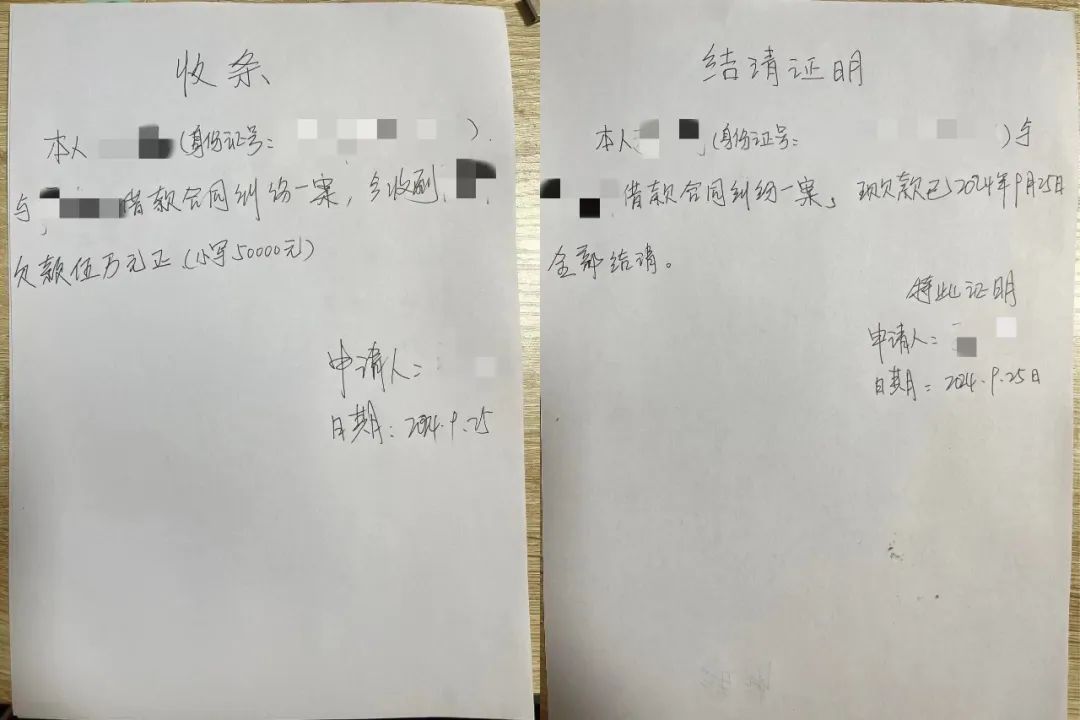 收条
本人 (身份证号: )
与 借款合同纠纷一案，今收到
欠款伍万元正(小写50000元)
申请人:
日期: 2024.9.25
结清证明
本人 (身份证号: )与
借款合同纠纷一案，现欠款已2024年9月25日
全部结清。
特此证明
申请人:
日期: 2024.9.25日